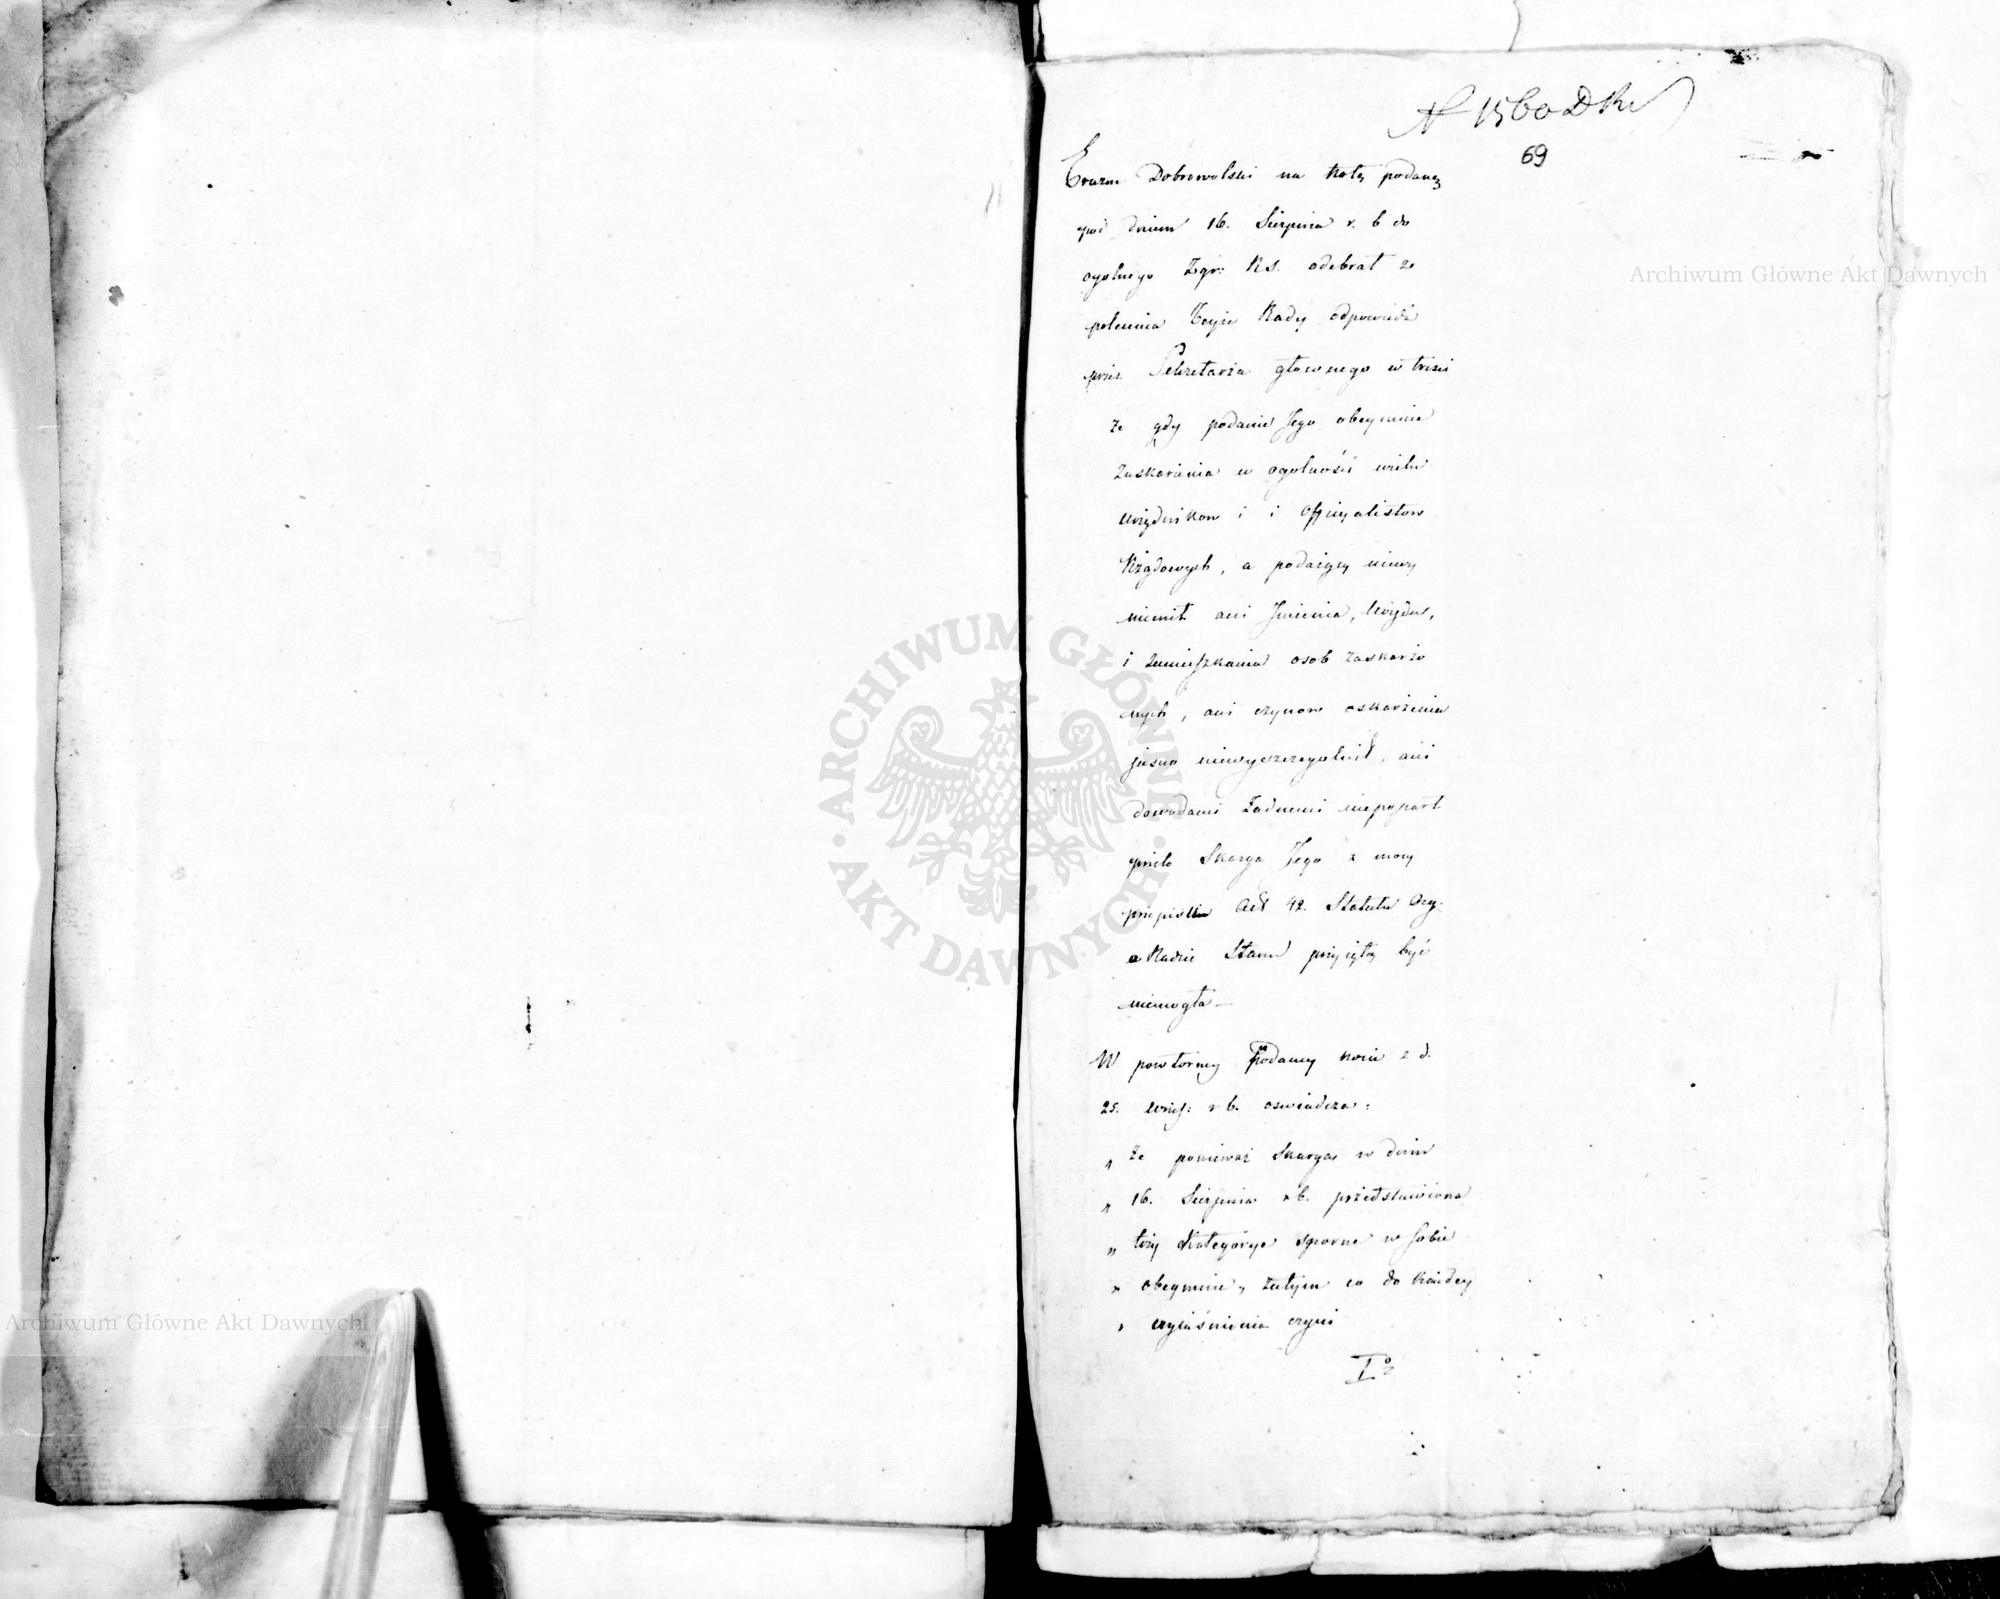 N 1560 DRS
69
Erazm Dobrowolski na Notę podaną
pod dniem 16. Sierpnia r. b do
ogolnego Zgr: RS. odebrał z
polecenia Teyże Rady odpowiedź
przez Sekretarza głownego w treści
że gdy podanie Jego obeymuie
Zaskarżenia w ogolności wielu
Urzędnikow i i Officyalistow
Rządowych, a podaiący niewy
mienił ani Imienia, Urzędu,
i Zamieszkania osob Zaskarżo
nych, ani czynow oskarżenia
jasno niewyszczegolnił, ani
dowodami Żadnemi niepoparł
przeto Skarga Jego z mocy
przepisu Art 42. Statutu Org:
o Radzie Stanu przyiętą być
niemogła —
W powtorney podaney Nocie z d.
25. Wrześ: r b. oswiadcza:
„ że ponieważ Skarga w dniu
„ 16. Sierpnia r b. przedstawiona
„ trzy Kategorye sporne w Sobie
„ obeymuie, zatym co do Każdey
„ wyiaśnienia czyni
I°
Archiwum Główne Akt Dawnych
Archiwum Główne Akt Dawnych
ARCHIWUM GŁÓWNE AKT DAWNYCH